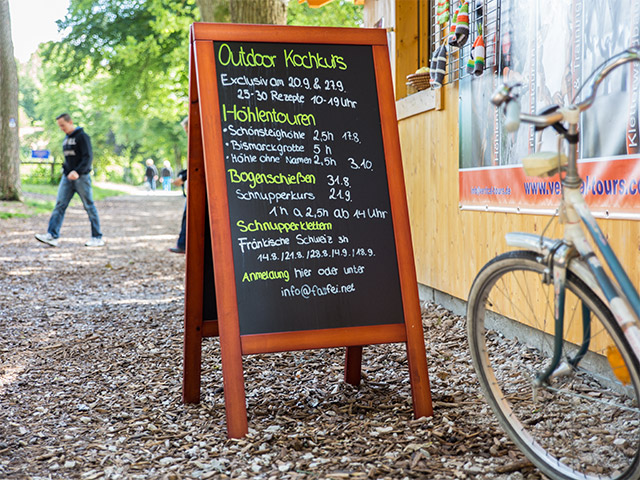 Outdoor Kochkurs
Exclusiv am 20.9. & 27.9.
25-30 Rezepte 10-19 Uhr
Höhlentouren
• Schönsteighöhle 2,5h 17.8.
• Bismarckgrotte 5 h
• Höhle ohne Namen 2,5h 3.10.
Bogenschießen 31.8.
Schnupperkurs 21.9.
1h a 2,5h ab 14 Uhr
Schnupperklettern
Fränkische Schweiz 3h
14.8./21.8./28.8./4.9./18.9.
Anmeldung hier oder unter
www.
tours.com